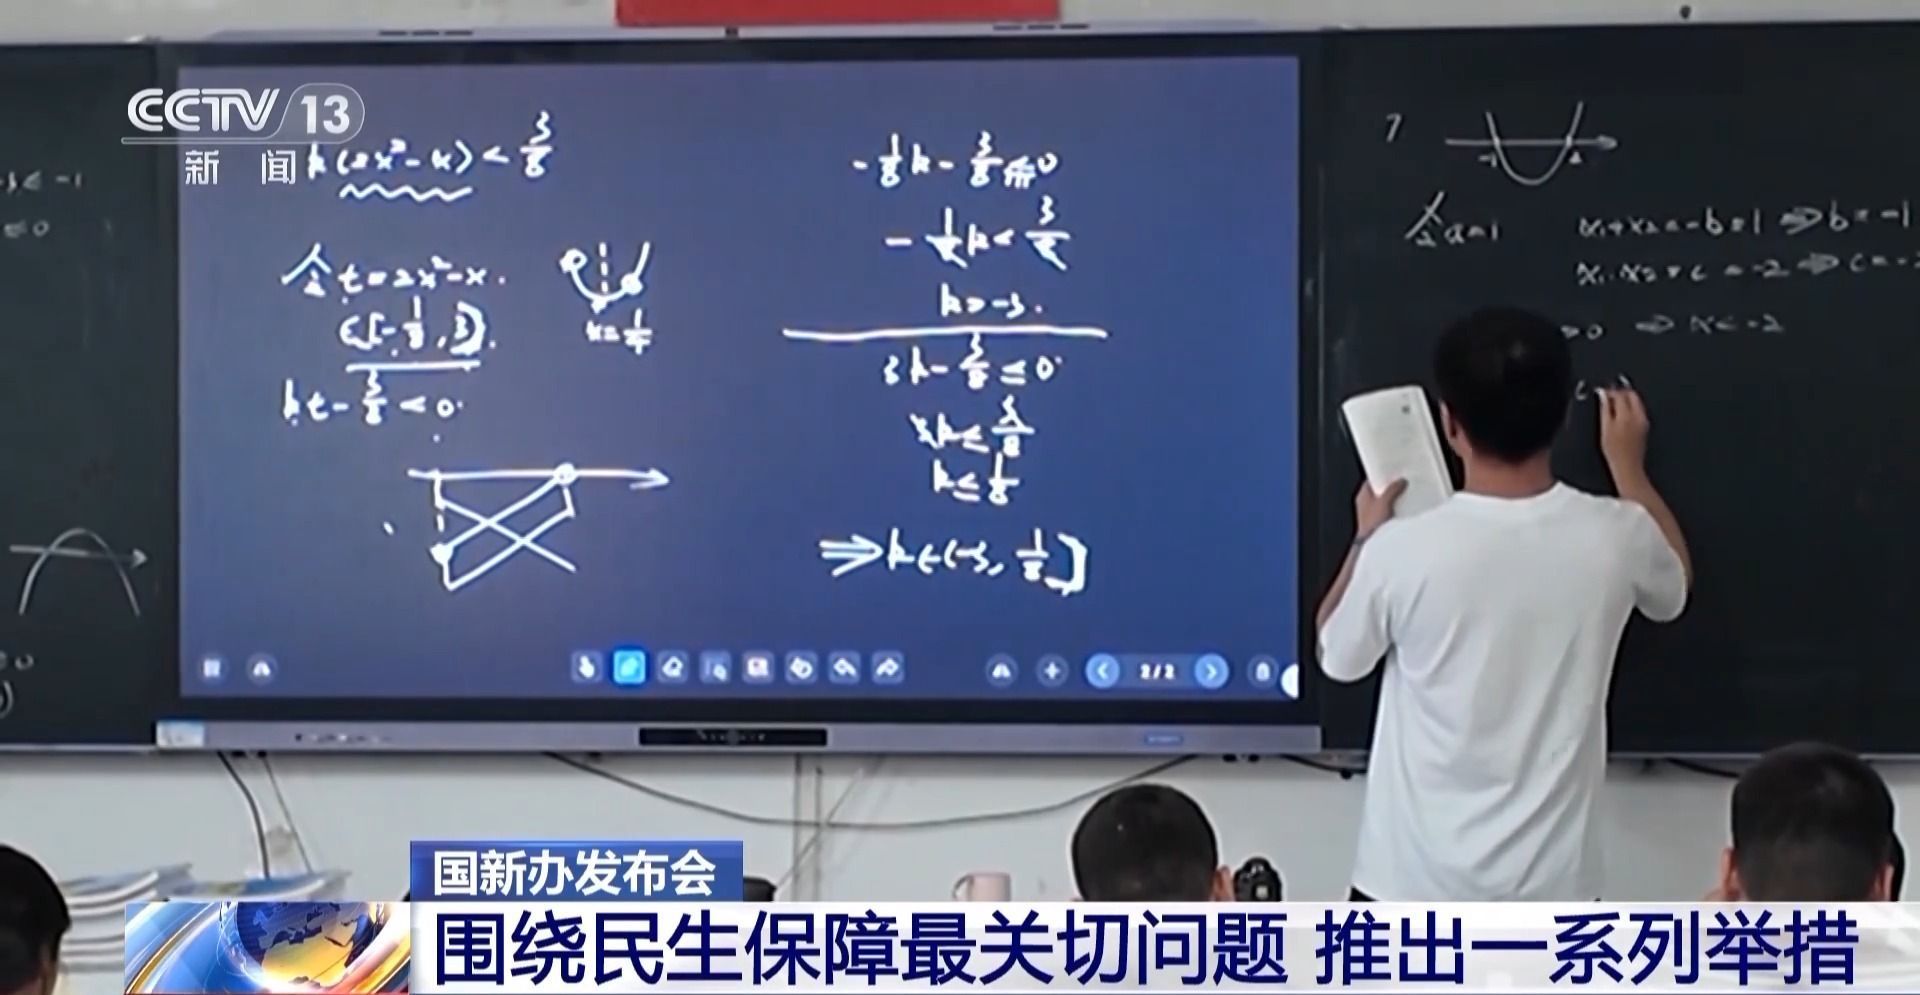 CCTV 13
新闻
k(2x²-x)<3/8
令t=2x²-x.
∈[-1/8,3).
kt-3/8<0.
x=1/4
-1/8k-3/8<0
-1/8k<3/8
k>-3.
3k-3/8≤0.
3k≤3/8
k≤1/8
⇒k∈(-3,1/8]
2/2
7
-1 2
令a=1
x₁+x₂=-b=1⇒b=-1
x₁·x₂=c=-2⇒c=-2
>0 ⇒x<-2
≤0
国新办发布会
围绕民生保障最关切问题 推出一系列举措